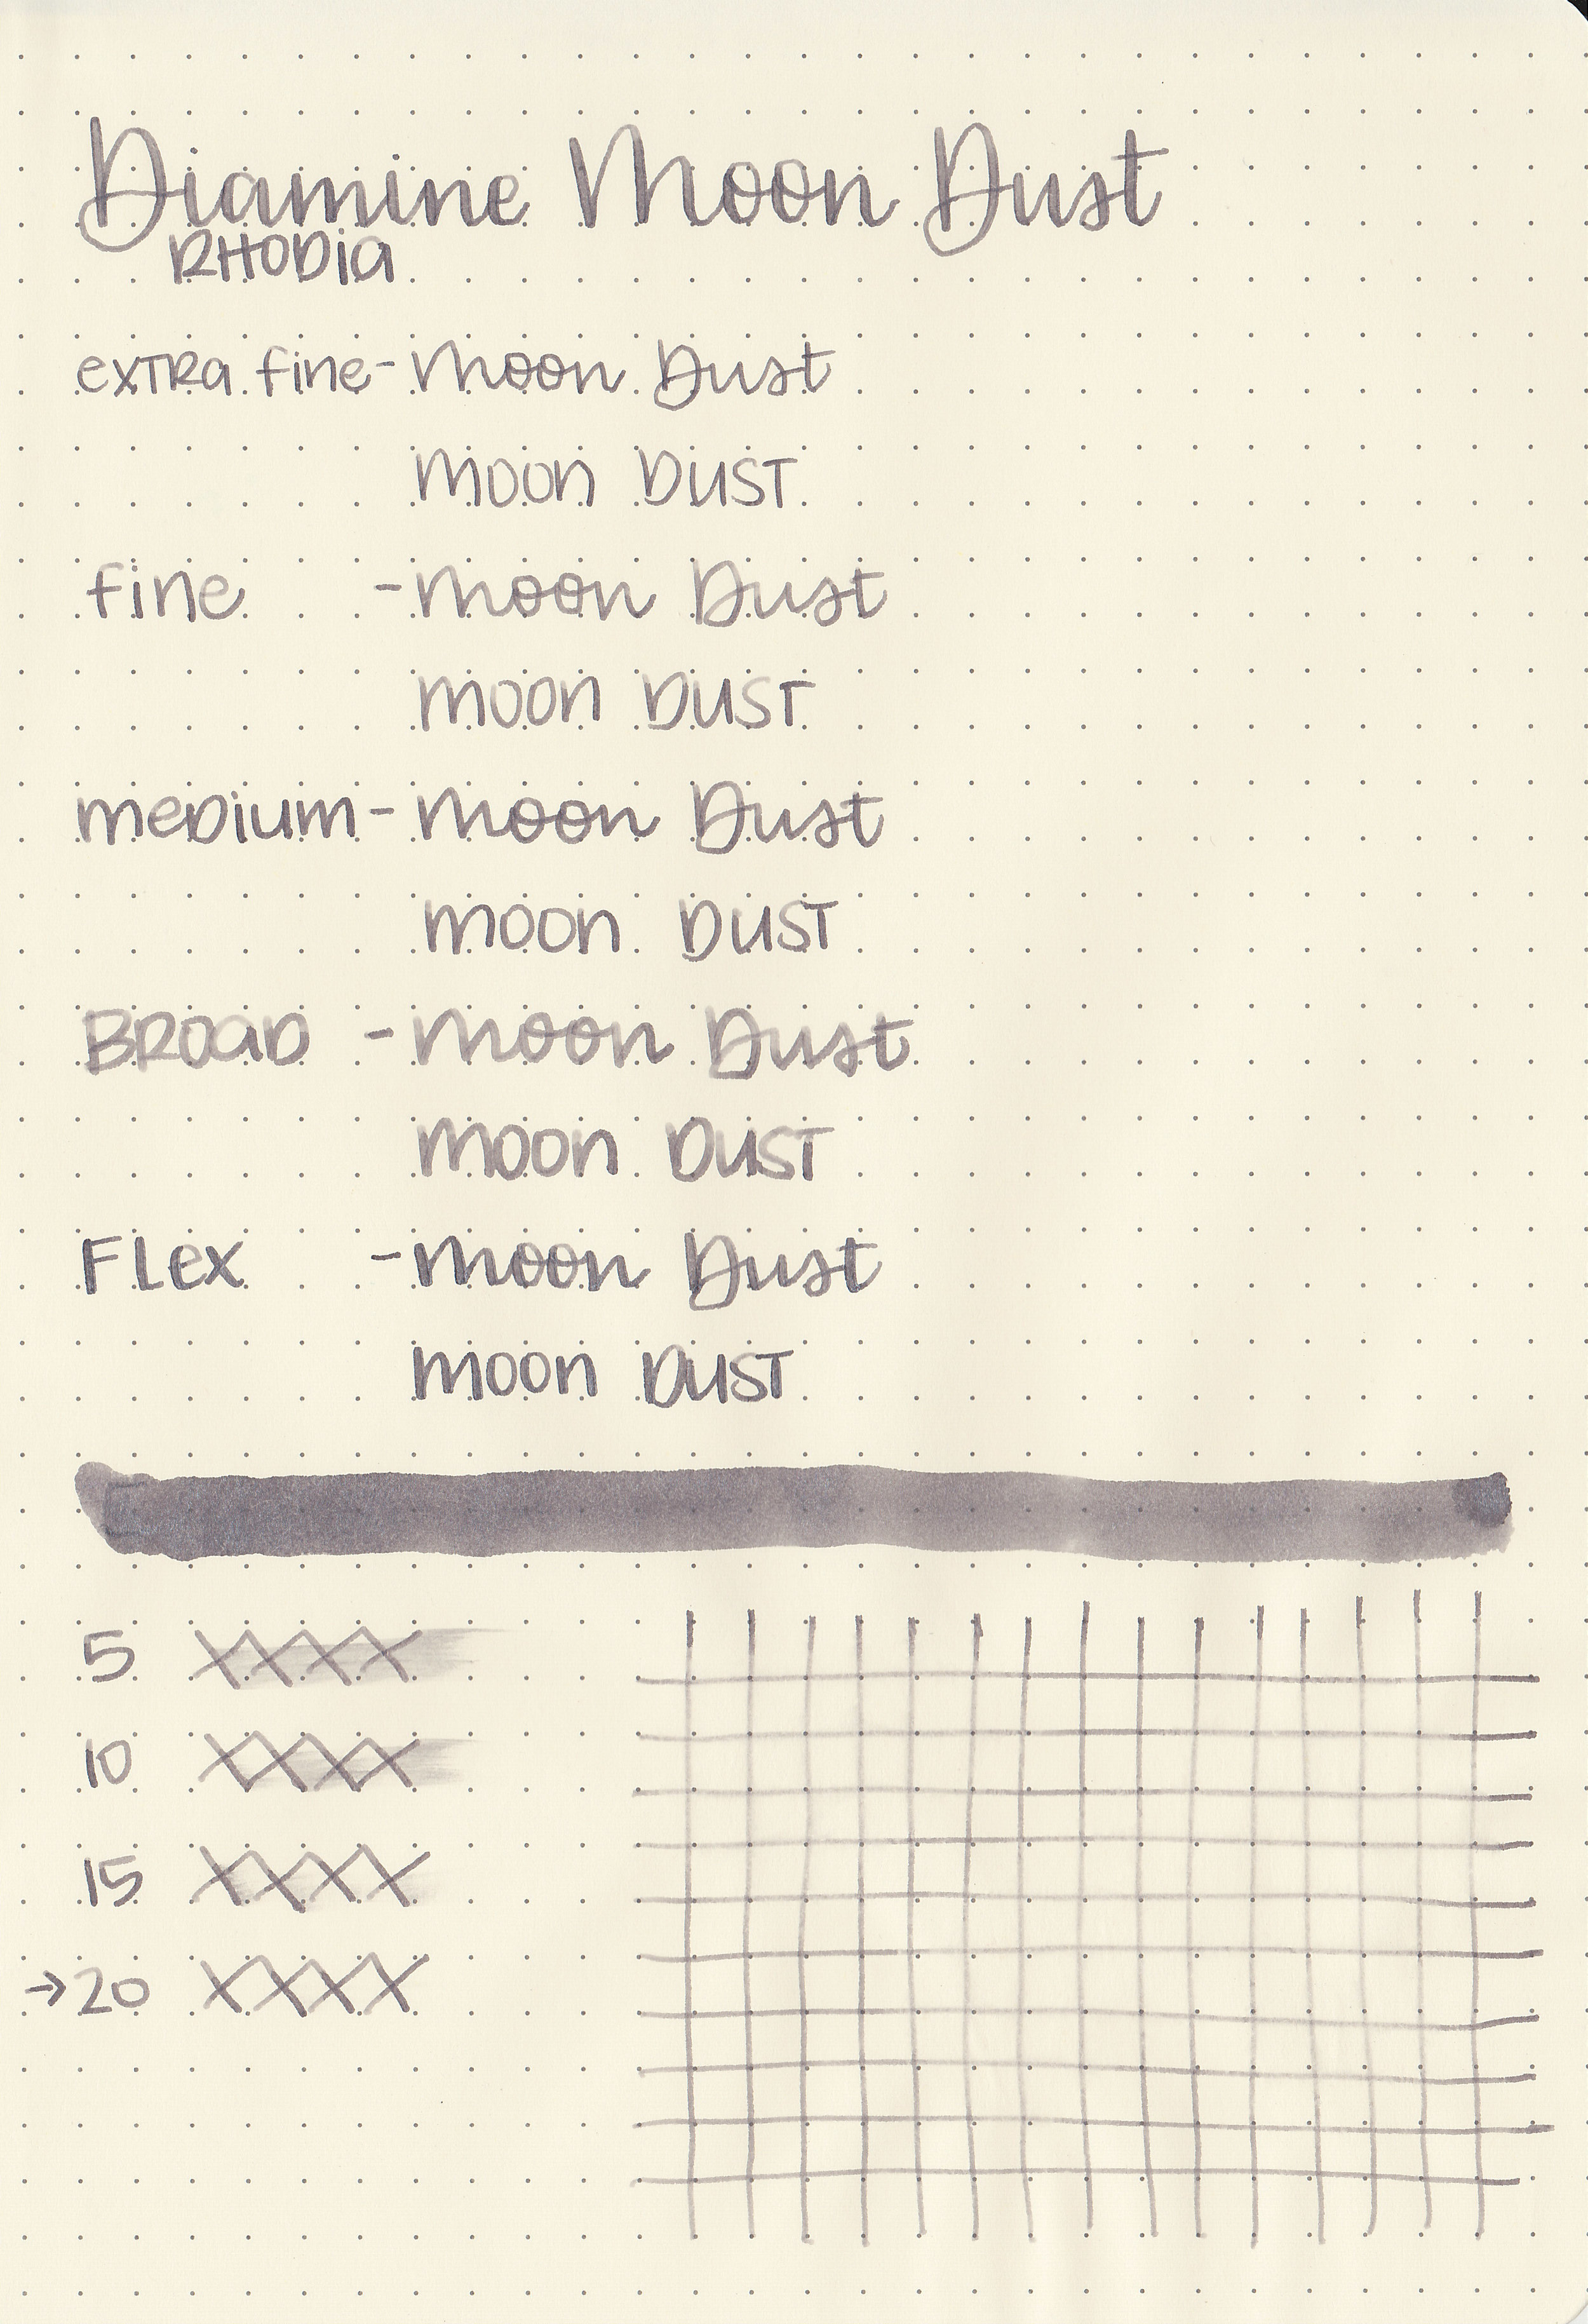 Diamine Moon Dust
RHODia
exTRa fine - Moon Dust
moon DUST
fine - Moon Dust
moon DUST
meDium - Moon Dust
moon DUST
BROaD - Moon Dust
moon DUST
FLex - Moon Dust
moon DUST
5 XXXX
10 XXXX
15 XXXX
→20 XXXX